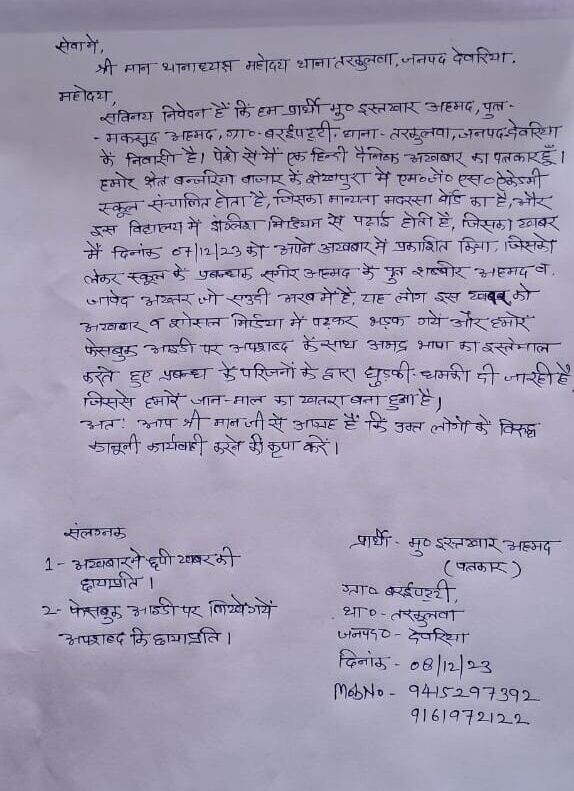 सेवा में,
श्री मान थानाध्यक्ष महोदय थाना तरकुलवा, जनपद देवरिया.
महोदय,
सविनय निवेदन है कि हम प्रार्थी मु० इस्तखार अहमद, पुत्र-
- मकसूद अहमद, ग्रा०- बरईपट्टी, थाना- तरकुलवा, जनपद-देवरिया
के निवासी है। पेशे से में एक हिन्दी दैनिक अखबार का पत्रकार हूँ।
हमारे क्षेत्र बन्जरिया बाजार के शेखपुरा में एम०जे० एस० ऐकेडमी
स्कूल संचालित होता है, जिसका मान्यता मदरसा बोर्ड का है, और
इस विद्यालय में इंग्लिश मिडियम से पढ़ाई होती है, जिसका खबर
में दिनांक 07/12/23 को अपने अखबार में प्रकाशित किया, जिसको
लेकर स्कूल के प्रबन्धक सगीर अहमद के पुत्र शब्बीर अहमद व
जावेद अख्तर जो सउदी अरब में है, यह लोग इस खबर को
अखबार व शोसल मिडिया में पढ़कर भड़क गये और हमारे
फेसबुक आइडी पर अपशब्द के साथ अभद्र भाषा का इस्तेमाल
करते हुए प्रबन्धक के परिजनों के द्वारा धुड़की-धमकी दी जा रही है
जिससे हमारे जान-माल का खतरा बना हुआ है।
अतः आप श्री मान जी से आग्रह है कि उक्त लोगों के विरुद्ध
कानूनी कार्यवाही करने की कृपा करें।
संलग्नक
1- अखबार में छपी खबर की
छायाप्रति।
2- फेसबुक आइडी पर लिखे गये
अपशब्द कि छायाप्रति।
प्रार्थी- मु० इस्तखार अहमद
(पत्रकार)
ग्रा० बरईपट्टी,
था०- तरकुलवा
जनपद०- देवरिया
दिनांक - 08/12/23
Mob No - 9415297392
9161972122